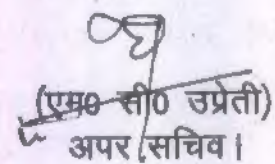 (एम0 सी0 उप्रेती)
अपर सचिव।